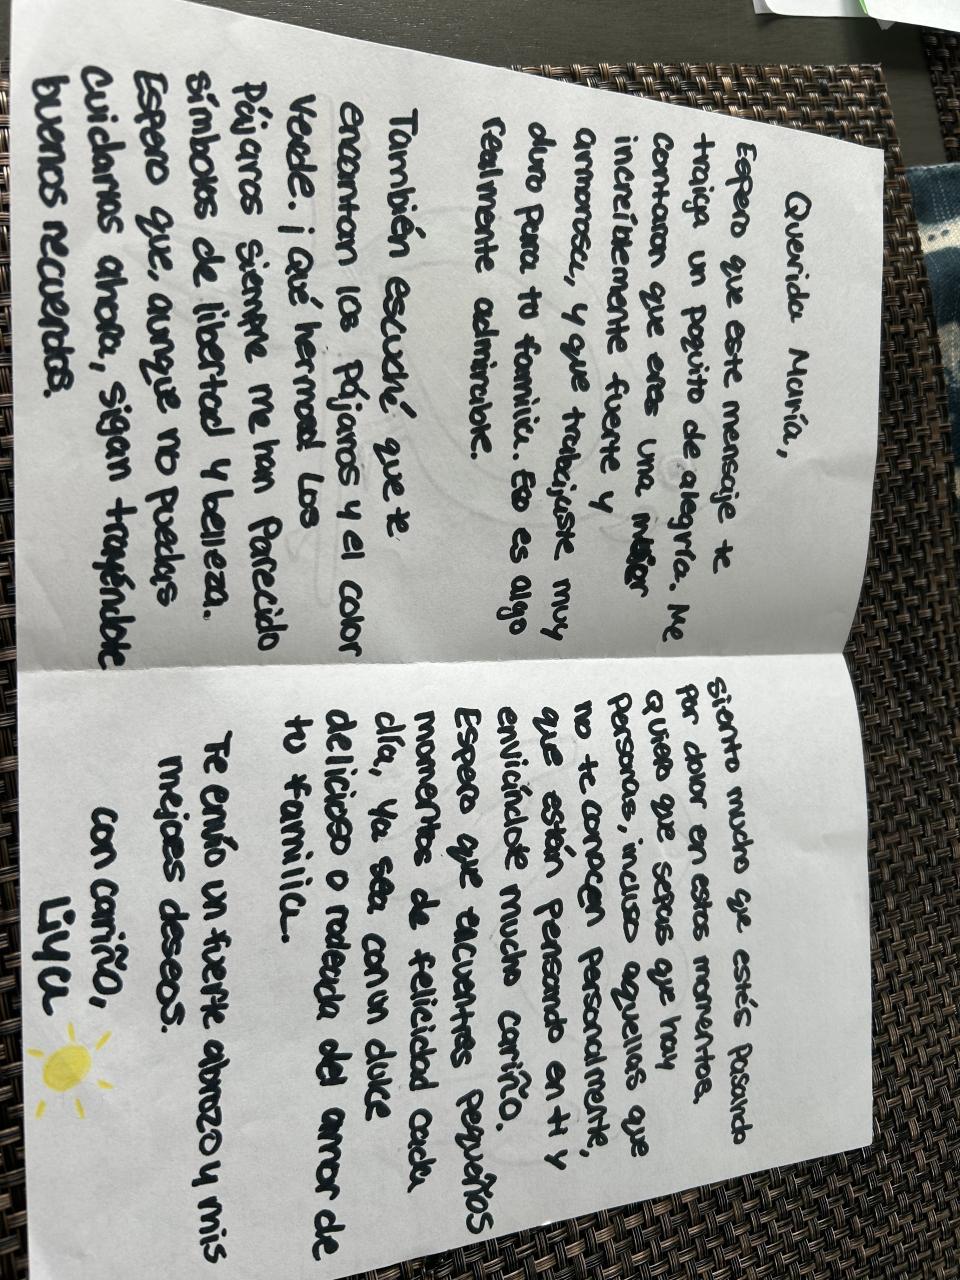 Querida María,
Espero que este mensaje te
traiga un poquito de alegría. Me
contaron que eres una mujer
increíblemente fuerte y
amorosa, y que trabajaste muy
duro para tu familia. Eso es algo
realmente admirable.
También escuché que te
encantan los pájaros y el color
verde. ¡Qué hermoso! Los
pájaros siempre me han parecido
símbolos de libertad y belleza.
Espero que, aunque no puedas
cuidarlos ahora, sigan trayéndote
buenos recuerdos.
Siento mucho que estés pasando
por dolor en estos momentos.
Quiero que sepas que hay
personas, incluso aquellas que
no te conocen personalmente,
que están pensando en ti y
enviándote mucho cariño.
Espero que encuentres pequeños
momentos de felicidad cada
día, ya sea con un dulce
delicioso o rodeada del amor de
tu familia.
Te envío un fuerte abrazo y mis
mejores deseos.
con cariño,
Liya